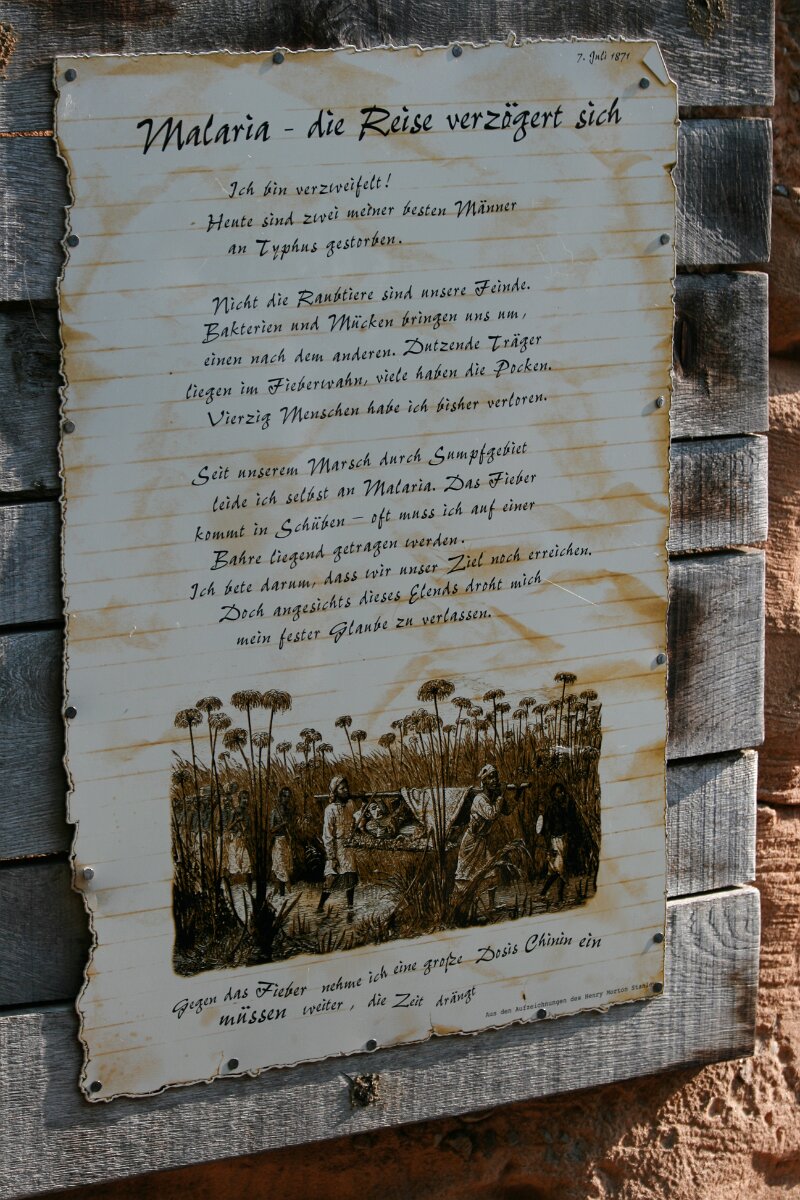 7. Juli 1871
Malaria - die Reise verzögert sich
Ich bin verzweifelt!
Heute sind zwei meiner besten Männer
an Typhus gestorben.
Nicht die Raubtiere sind unsere Feinde.
Bakterien und Mücken bringen uns um,
einen nach dem anderen. Dutzende Träger
liegen im Fieberwahn, viele haben die Pocken.
Vierzig Menschen habe ich bisher verloren.
Seit unserem Marsch durch Sumpfgebiet
leide ich selbst an Malaria. Das Fieber
kommt in Schüben – oft muss ich auf einer
Bahre liegend getragen werden.
Ich bete darum, dass wir unser Ziel noch erreichen.
Doch angesichts dieses Elends droht mich
mein fester Glaube zu verlassen.
Gegen das Fieber nehme ich eine große Dosis Chinin ein
müssen weiter, die Zeit drängt
Aus den Aufzeichnungen des Henry Morton